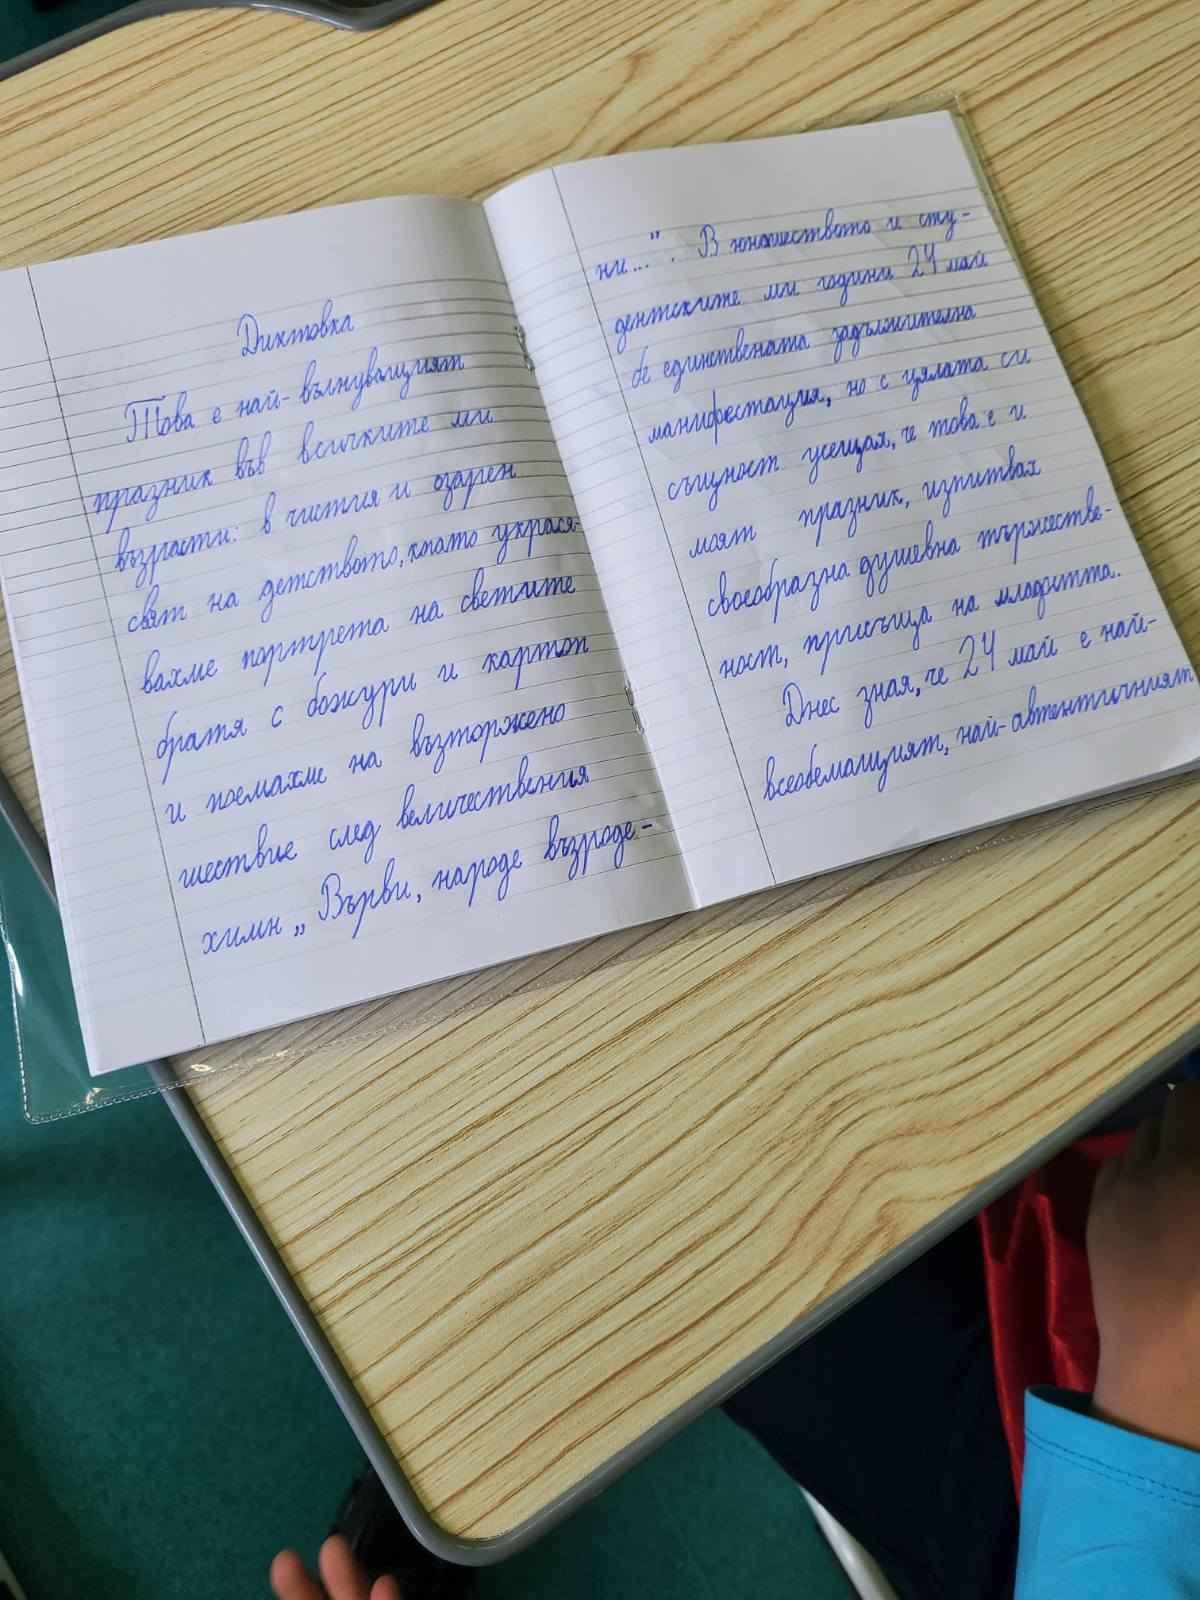 Диктовка
Това е най-вълнуващият
празник във всичките ми
възрасти: в чистия и озарен
свят на детството, когато украся-
вахме портрета на светлите
братя с божури и картон
и поемахме на възторжено
шествие след величествения
химн „Върви, народе възроде-
ни...". В юношеството и сту-
дентските ми години 24 май
бе единствената задължителна
манифестация, но с цялата си
същност усещая, че това е и
моят празник, изпитвах
своеобразна душевна тържестве-
ност, присъща на младостта.
Днес зная, че 24 май е най-
всеобемащият, най-автентичният